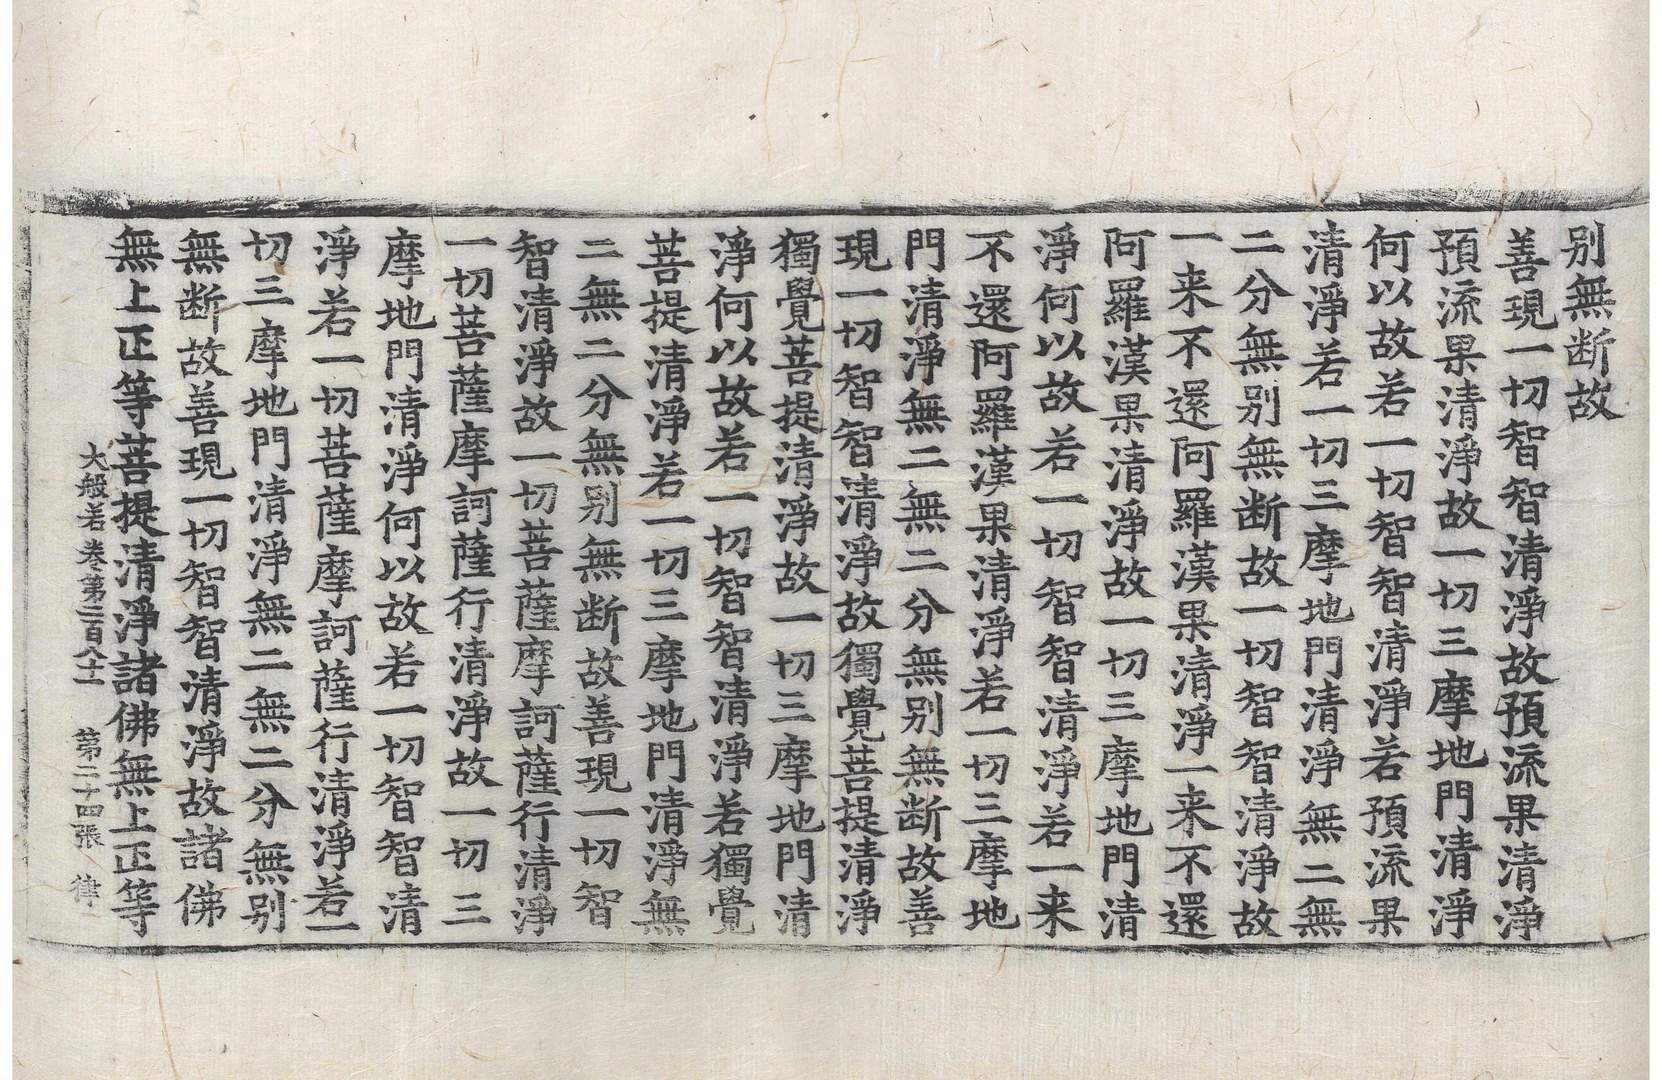 别無断故
善現一切智智清淨故預流果清淨
預流果清淨故一切三摩地門清淨
何以故若一切智智清淨若預流果
清淨若一切三摩地門清淨無二無
二分無别無断故一切智智清淨故
一来不還阿羅漢果清淨一来不還
阿羅漢果清淨故一切三摩地門清
淨何以故若一切智智清淨若一来
不還阿羅漢果清淨若一切三摩地
門清淨無二無二分無别無断故善
現一切智智清淨故獨覺菩提清淨
獨覺菩提清淨故一切三摩地門清
淨何以故若一切智智清淨若獨覺
菩提清淨若一切三摩地門清淨無
二無二分無别無断故善現一切智
智清淨故一切菩薩摩訶薩行清淨
一切菩薩摩訶薩行清淨故一切三
摩地門清淨何以故若一切智智清
淨若一切菩薩摩訶薩行清淨若一
切三摩地門清淨無二無二分無别
無断故善現一切智智清淨故諸佛
無上正等菩提清淨諸佛無上正等
大般若卷第二百八十一 第二十四張 律